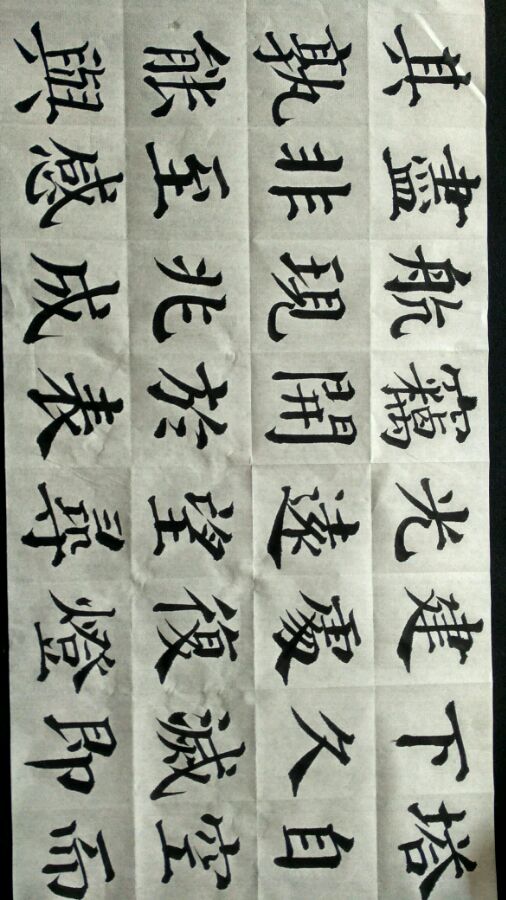 塔自空而
下久滅即
建處復燈
光遠望尋
竊開於表
航現兆成
盡非至感
其孰能與